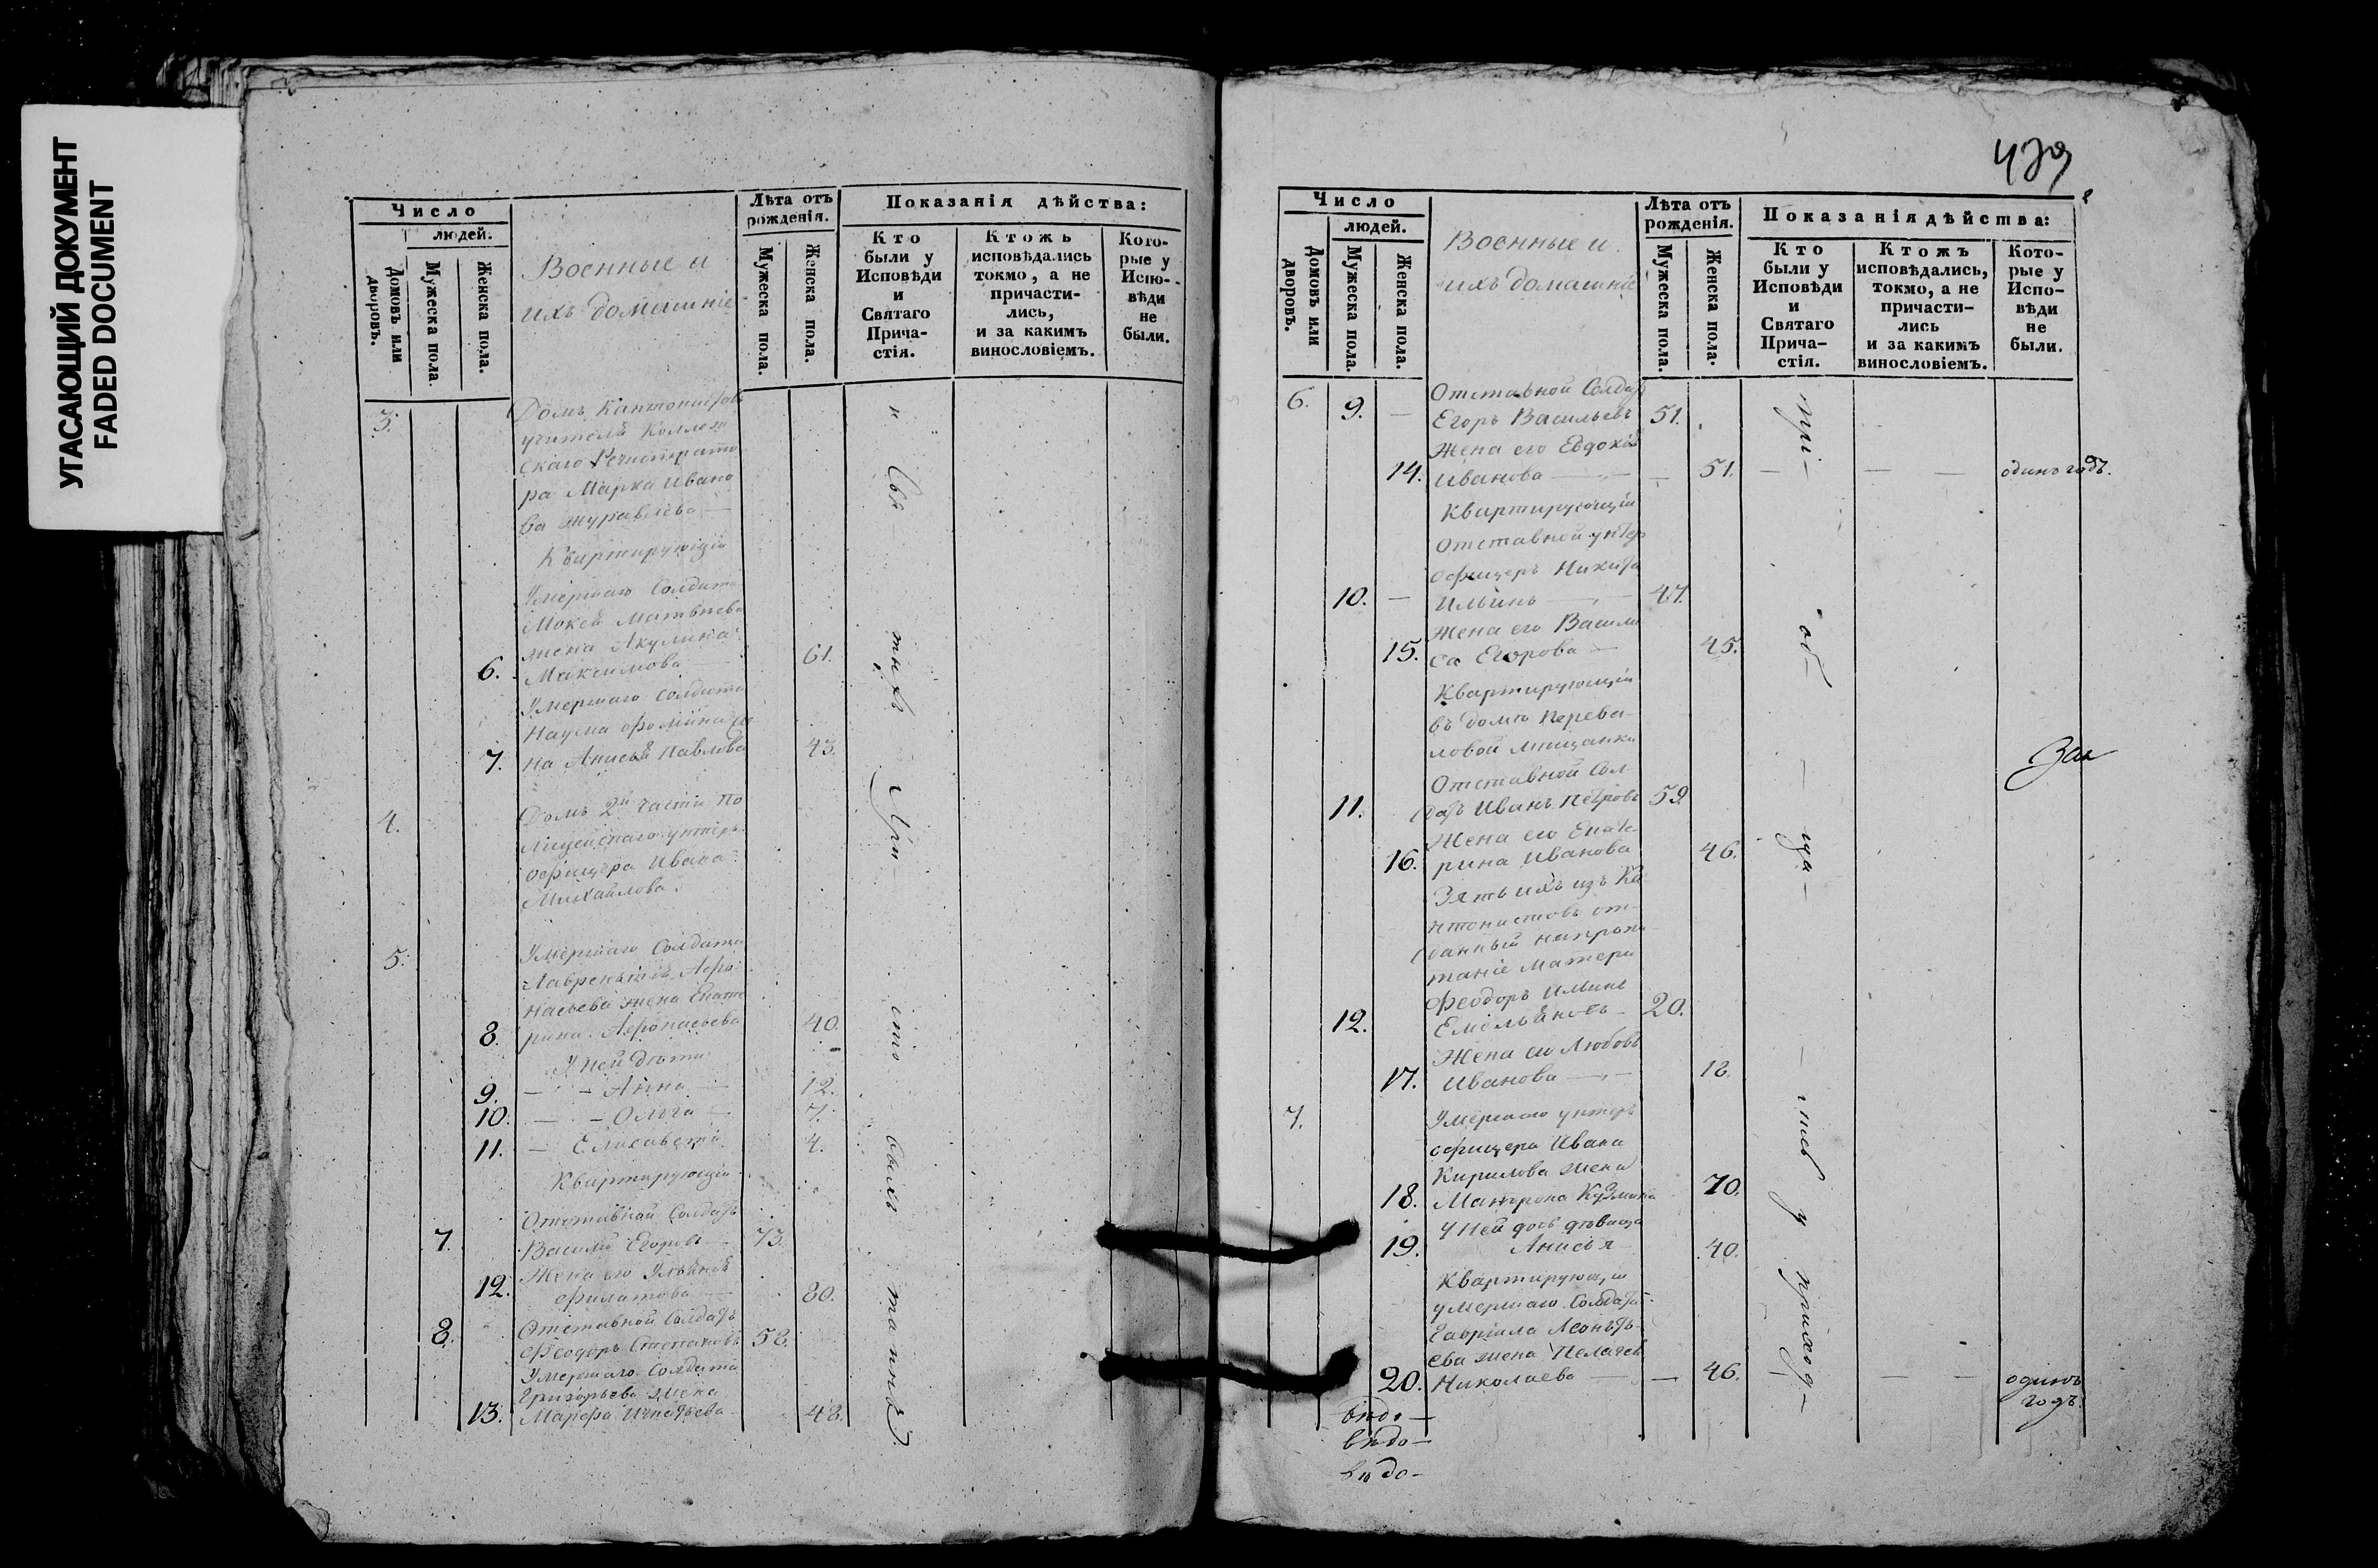 УГАСАЮЩИЙ ДОКУМЕНТ
FADED DOCUMENT
Число
людей.
Домовъ или
дворовъ.
Мужеска пола.
Женска пола.
Военные и
ихъ домашніе
Лѣта отъ
рожденія.
Мужеска пола.
Женска пола.
Показанія дѣйства:
Кто
были у
Исповѣди
и
Святаго
Прича-
стія.
Ктожъ
исповѣдались
токмо, а не
причасти-
лись,
и за какимъ
винословіемъ.
Кото-
рые у
Испо-
вѣди
не
были.
3. Домъ Кантонистовъ
учителя Коллеж
скаго Регистрато
ра Марка Ивано
ва Журавлева —
Квартирующіе
Умершаго Солдата
Мокея Матвѣева
жена Акулина
6. Максимова — 61.
Умершаго Солдата
Наума Фомина же
7. на Анисья Павлова 43.
4. Домъ 2й части По
лицейскаго унтеръ
офицера Ивана
Михайлова.
5. Умершаго Солдата
Лаврентія Афо
насьева жена Екате
8. рина Афонасьева 40.
У ней дѣти
9. — Анна — 12.
10. — Ольга — 7.
11. — Елисаветъ 4.
Квартирующіе
Отставной Солдатъ
7. Василій Егоровъ — 73.
Жена его Ульянія
12. Филатова — 80.
Отставной Солдатъ
8. Феодоръ Степановъ 58.
Умершаго Солдата
Григорьева жена
13. Марфа Игнатьева 48.
и
Свя
тыхъ
Хри
сто
выхъ
таинъ
479
Число
людей.
Домовъ или
дворовъ.
Мужеска пола.
Женска пола.
Военные и
ихъ домашніе
Лѣта отъ
рожденія.
Мужеска пола.
Женска пола.
Показанія дѣйства:
Кто
были у
Исповѣди
и
Святаго
Прича-
стія.
Ктожъ
исповѣдались,
токмо, а не
причасти-
лись
и за какимъ
винословіемъ.
Кото-
рые у
Испо-
вѣди
не
были.
Отставной Солдатъ
6. 9. — Егоръ Васильевъ 51.
Жена его Евдокія
14. Иванова — — 51. — — — одинъ годъ.
Квартирующіе
Отставной унтер
офицеръ Никита
10. — Ильинъ — 47.
Жена его Васили
15. са Егорова — 45.
Квартирующіе
въ домѣ Перева-
ловой мѣщанки
Отставной Сол-
11. датъ Иванъ Петровъ 59.
Жена его Екате-
16. рина Иванова 46.
Зять ихъ изъ Ка
нтонистовъ от-
данный на пропи
таніе матери
Феодоръ Ильинъ
12. Емельяновъ — 20.
Жена его Любовь
17. Иванова — 18.
7. Умершаго унтеръ
офицера Ивана
Кирилова жена
18. Матрона Кузмина 70.
У ней дочь дѣвица
19. Анисья 40.
Квартирующіе
умершаго Солдата
Гавріила Леонть-
ева жена Пелагея
20. Николаева — — 46. — — одинъ
годъ.
при-
об-
ща-
у
приход-
вѣдо —
вѣдо —
вѣдо —